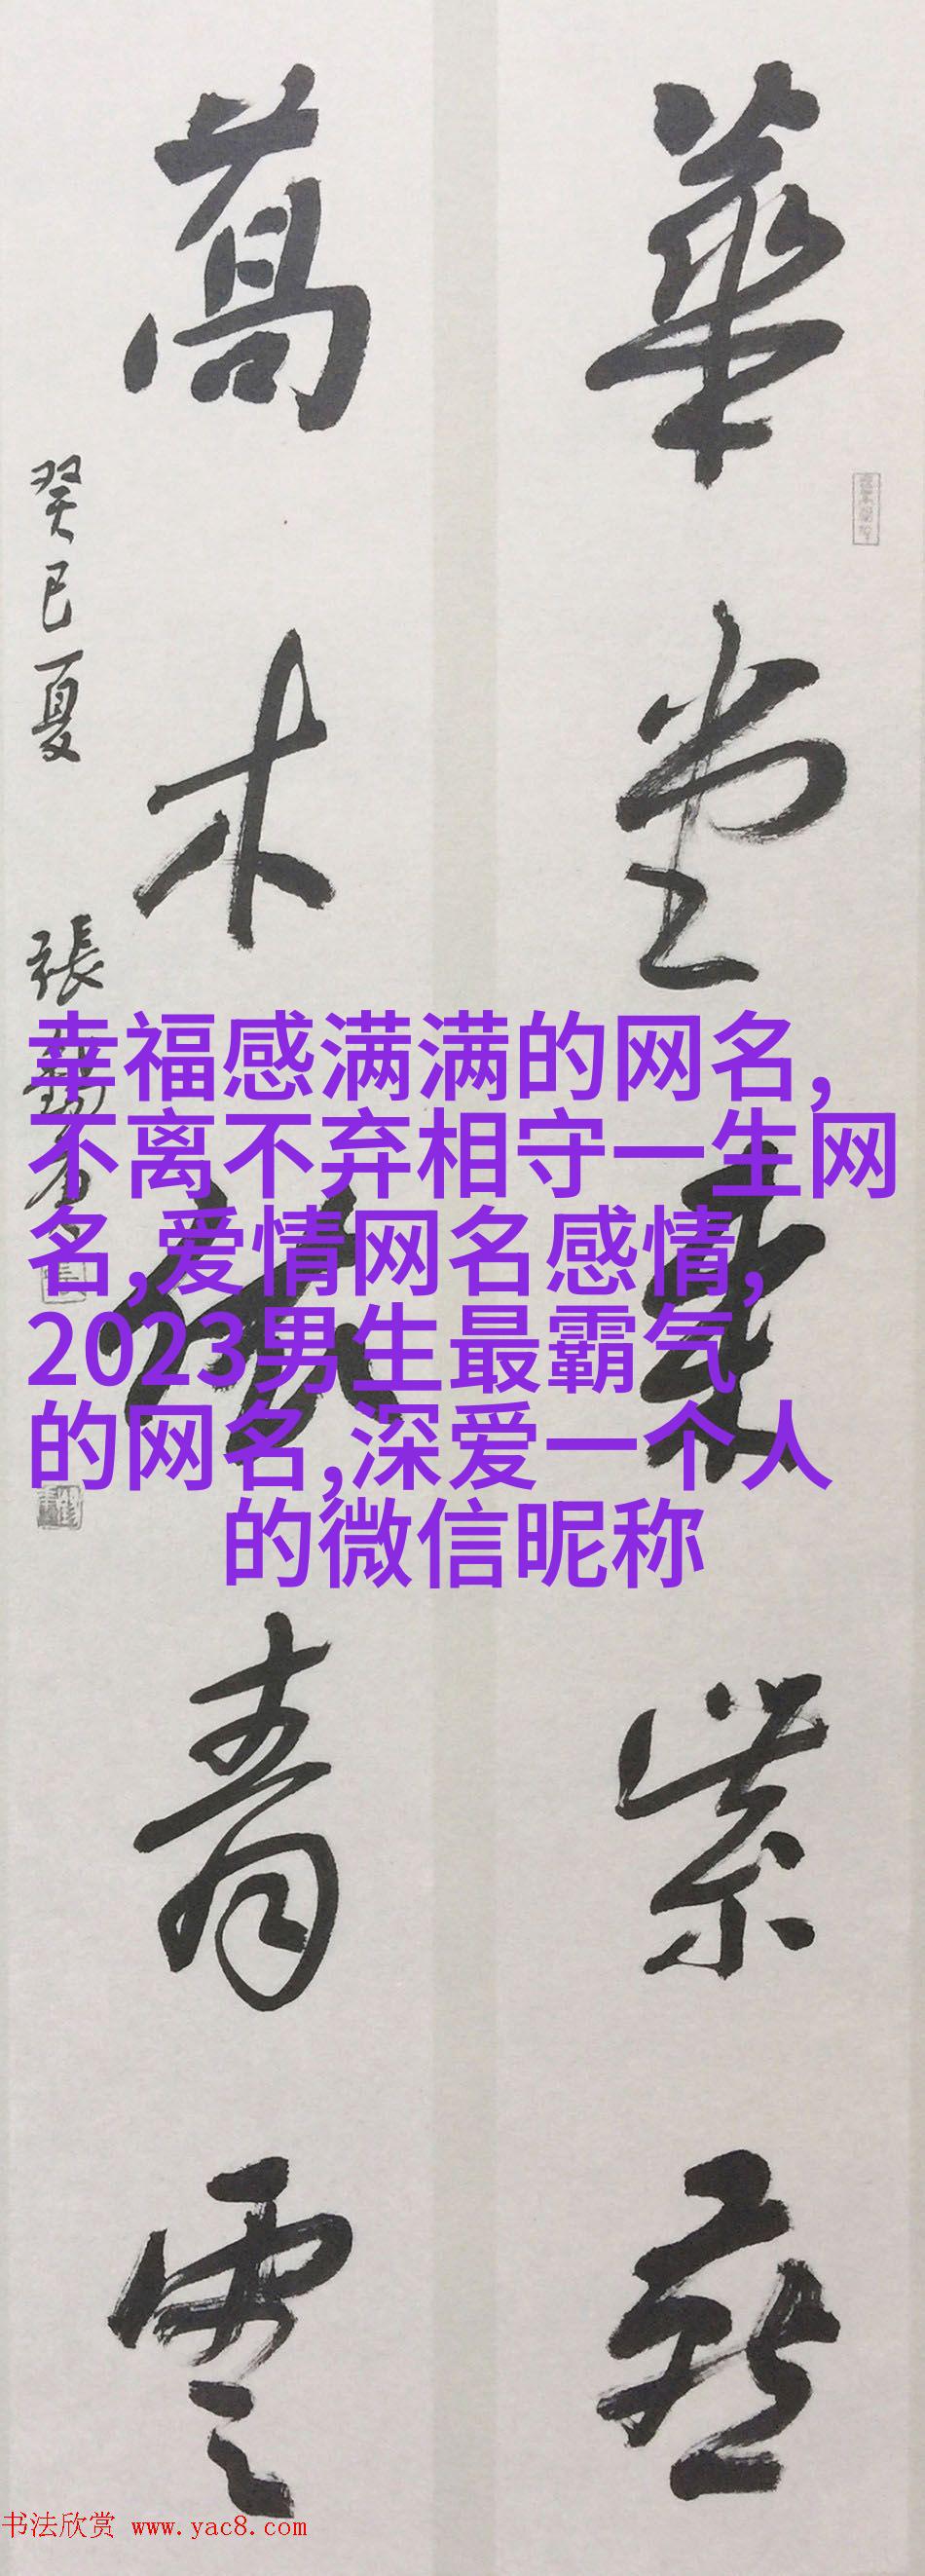 華堂來紫燕
萬木依青雲
癸巳夏
張
幸福感满满的网名,
不离不弃相守一生网
名,爱情网名感情,
2023男生最霸气
的网名,深爱一个人
的微信昵称
书法欣赏 www.yac8.com